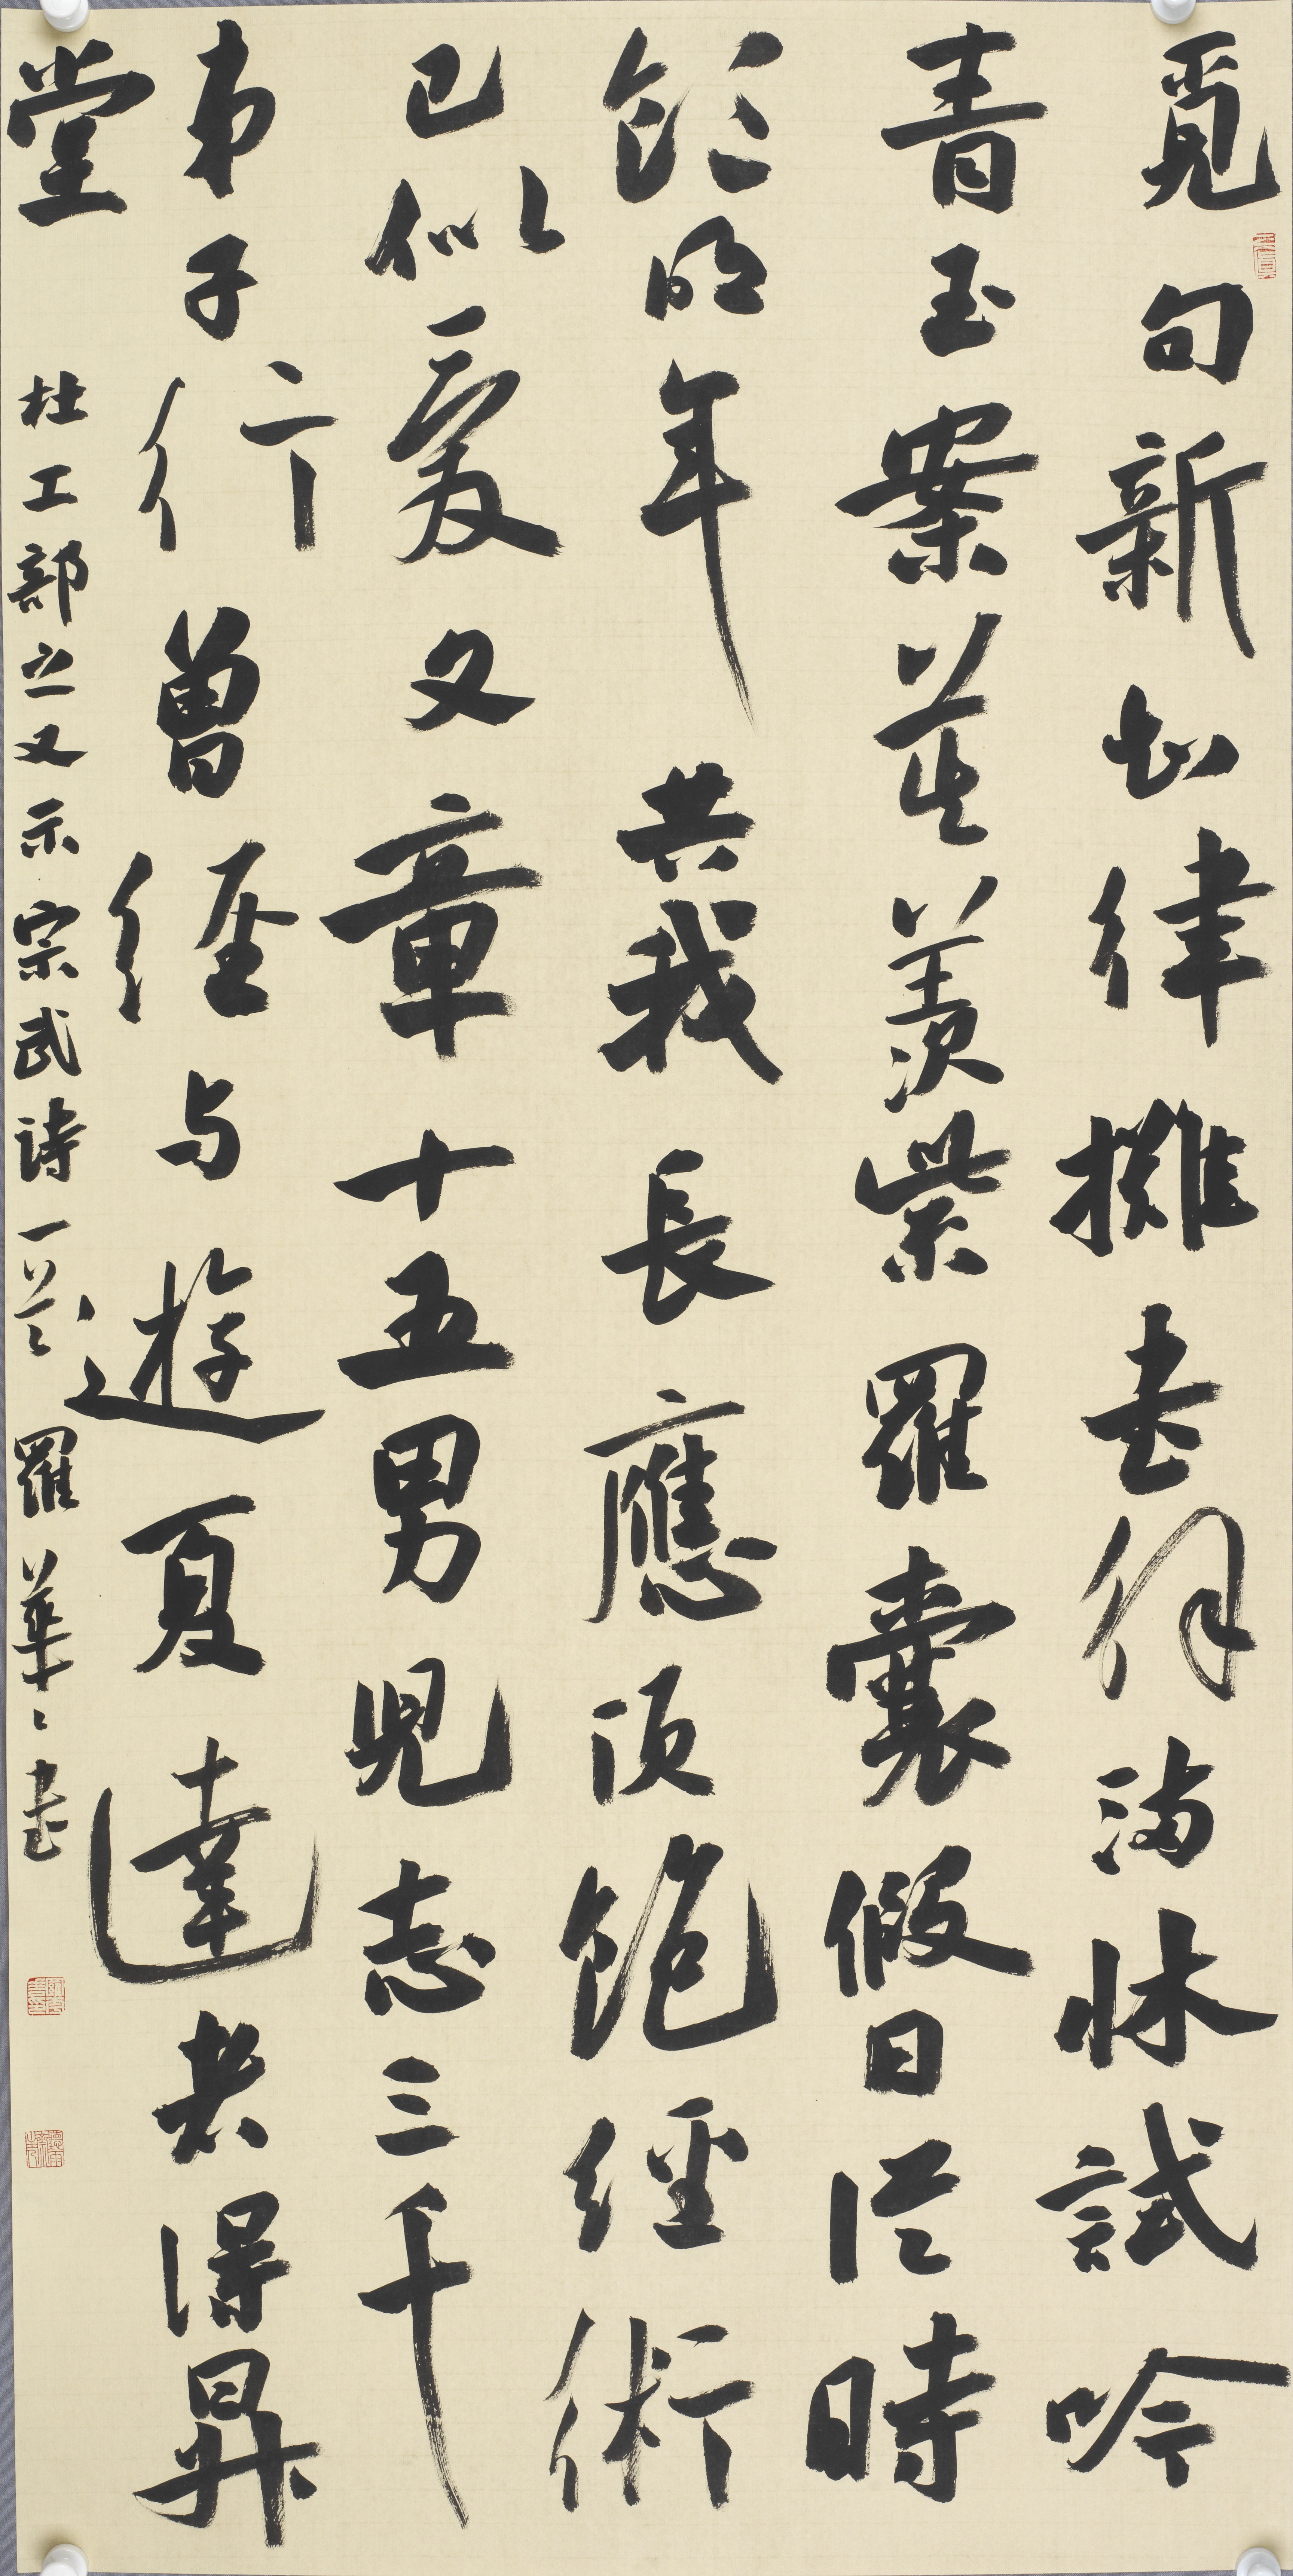 覓句新知律攤書解滿牀試吟
青玉案莫羨紫羅囊假日從時
飲明年共我長應須飽經術
已似愛又章十五男兒志三千
弟子行曾經与遊夏達者得昇
堂 杜工部之又示宗武詩一首 羅華〻書